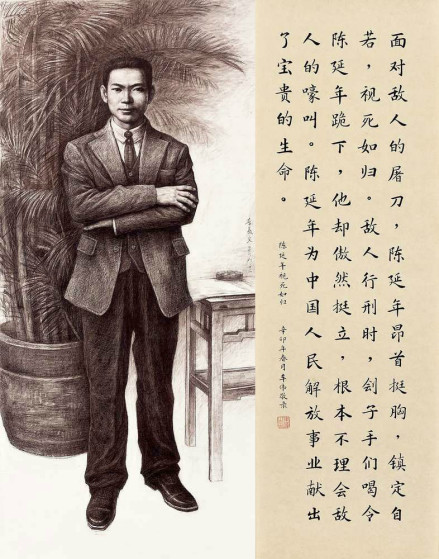 面对敌人的屠刀，陈延年昂首挺胸，镇定自
若，视死如归。敌人行刑时，刽子手们喝令
陈延年跪下，他却傲然挺立，根本不理会敌
人的嚎叫。陈延年为中国人民解放事业献出
了宝贵的生命。
陈延年视死如归
辛卯年春月